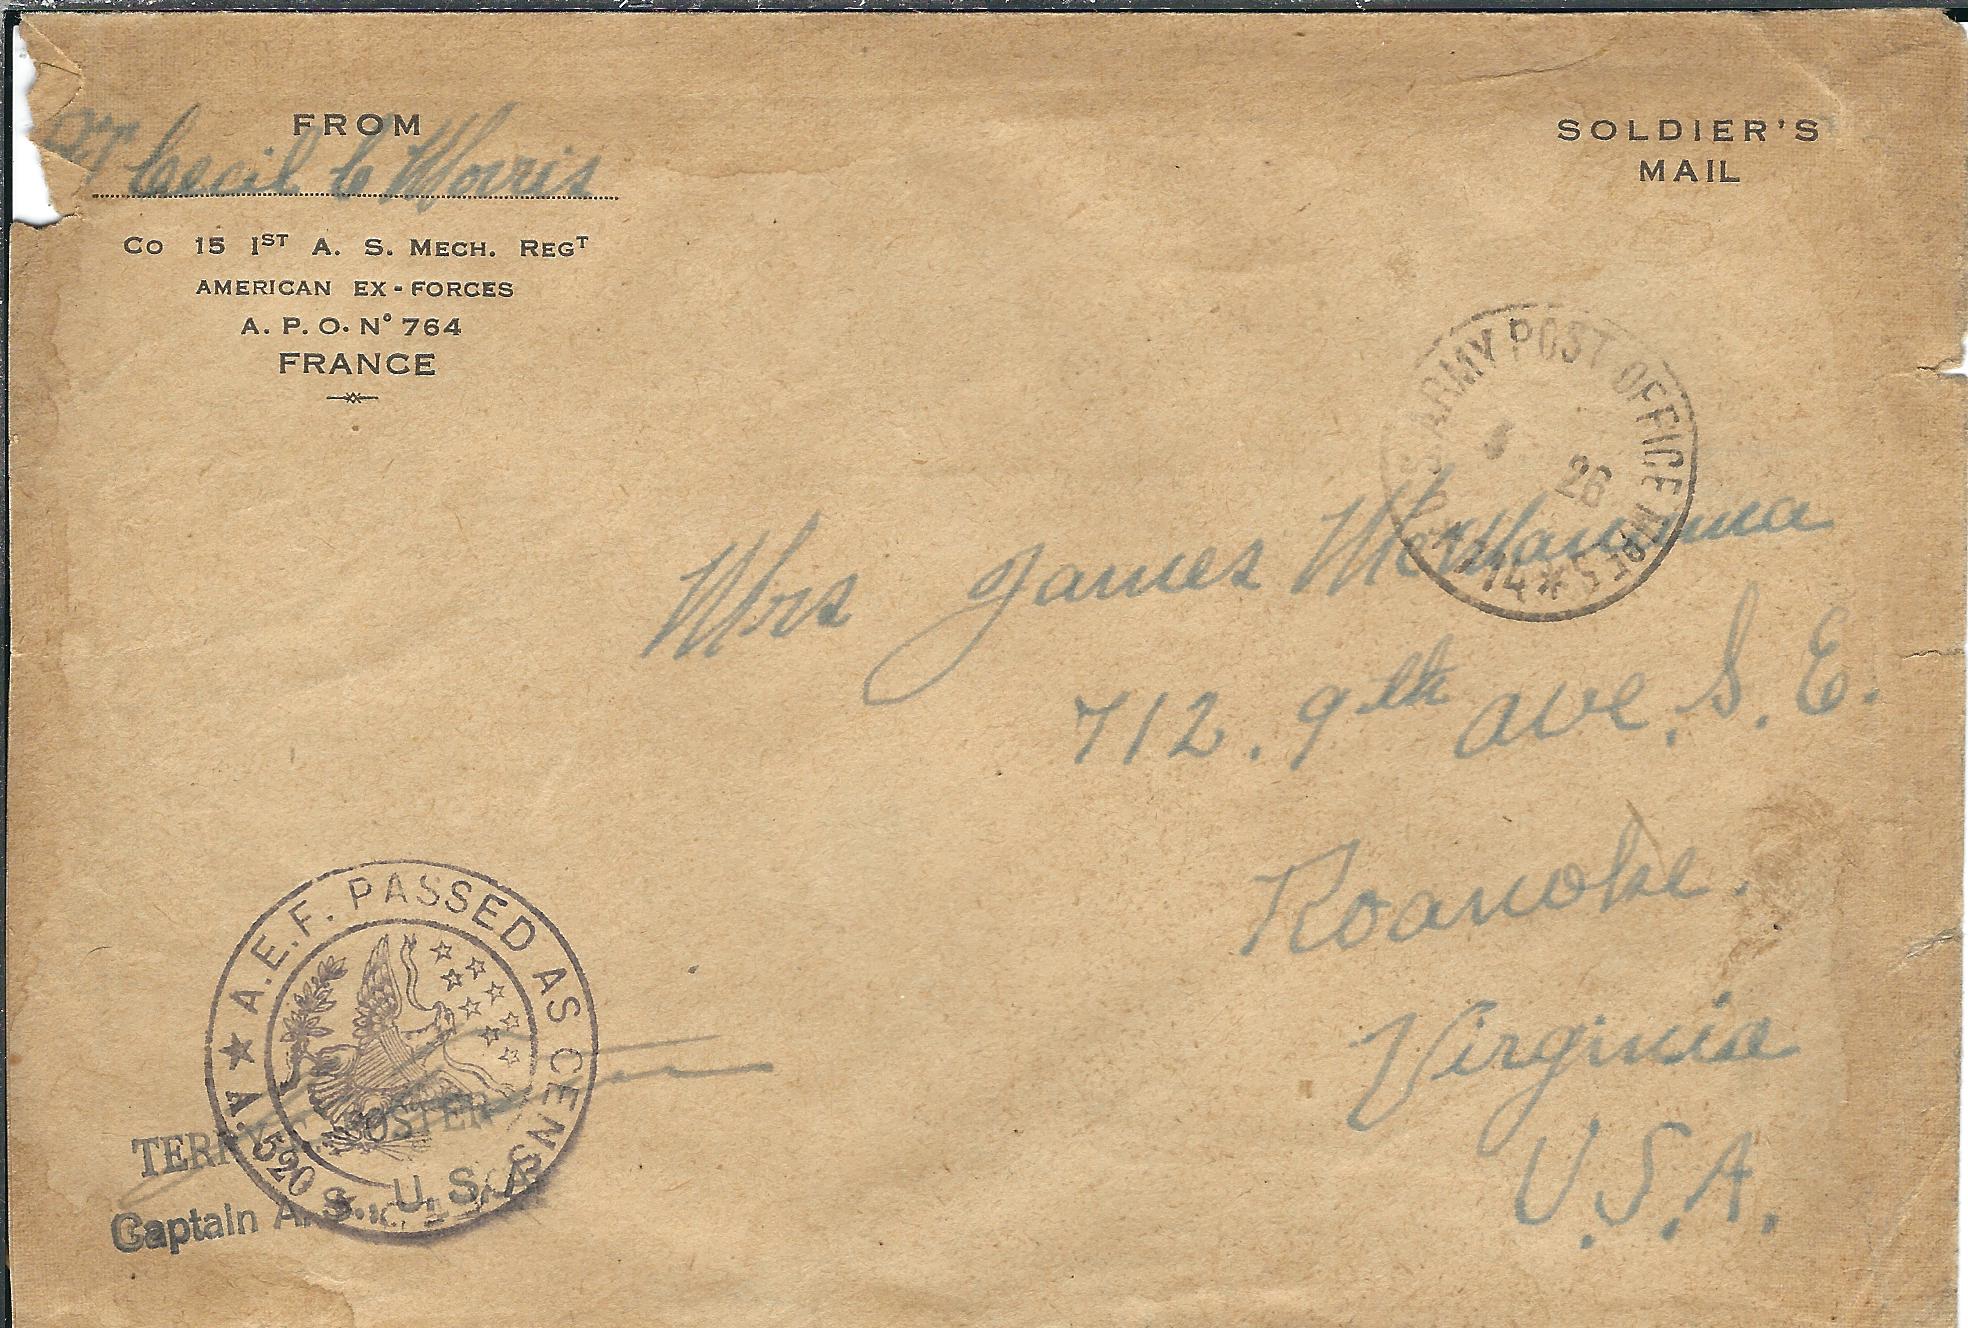 FROM
Cecil C Morris
Co 15 1ST A. S. MECH. REGT
AMERICAN EX-FORCES
A. P. O. No 764
FRANCE
SOLDIER'S
MAIL
ARMY POST OFFICE M.P.E.S.
26
Mrs James
712. 9th ave. S. E.
Roanoke.
Virginia
U.S.A.
A.E.F. PASSED AS CENSORED
A. 590
OSTER
Captain A. S. U. S. A.